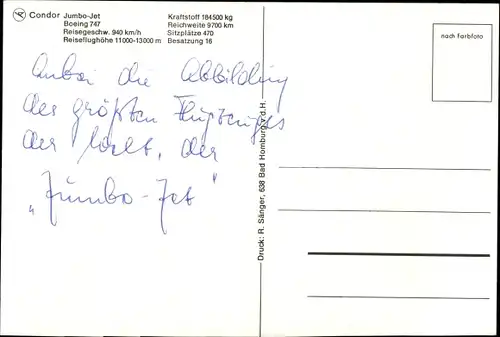 Condor Jumbo-Jet
Boeing 747
Reisegeschw. 940 km/h
Reiseflughöhe 11000-13000 m
Kraftstoff 184500 kg
Reichweite 9700 km
Sitzplätze 470
Besatzung 16
nach Farbfoto
Anbei die Abbildung
des größten Flugzeuges
der Welt, der
„Jumbo-Jet"
Druck: R. Sänger, 638 Bad Homburg v.d.H.